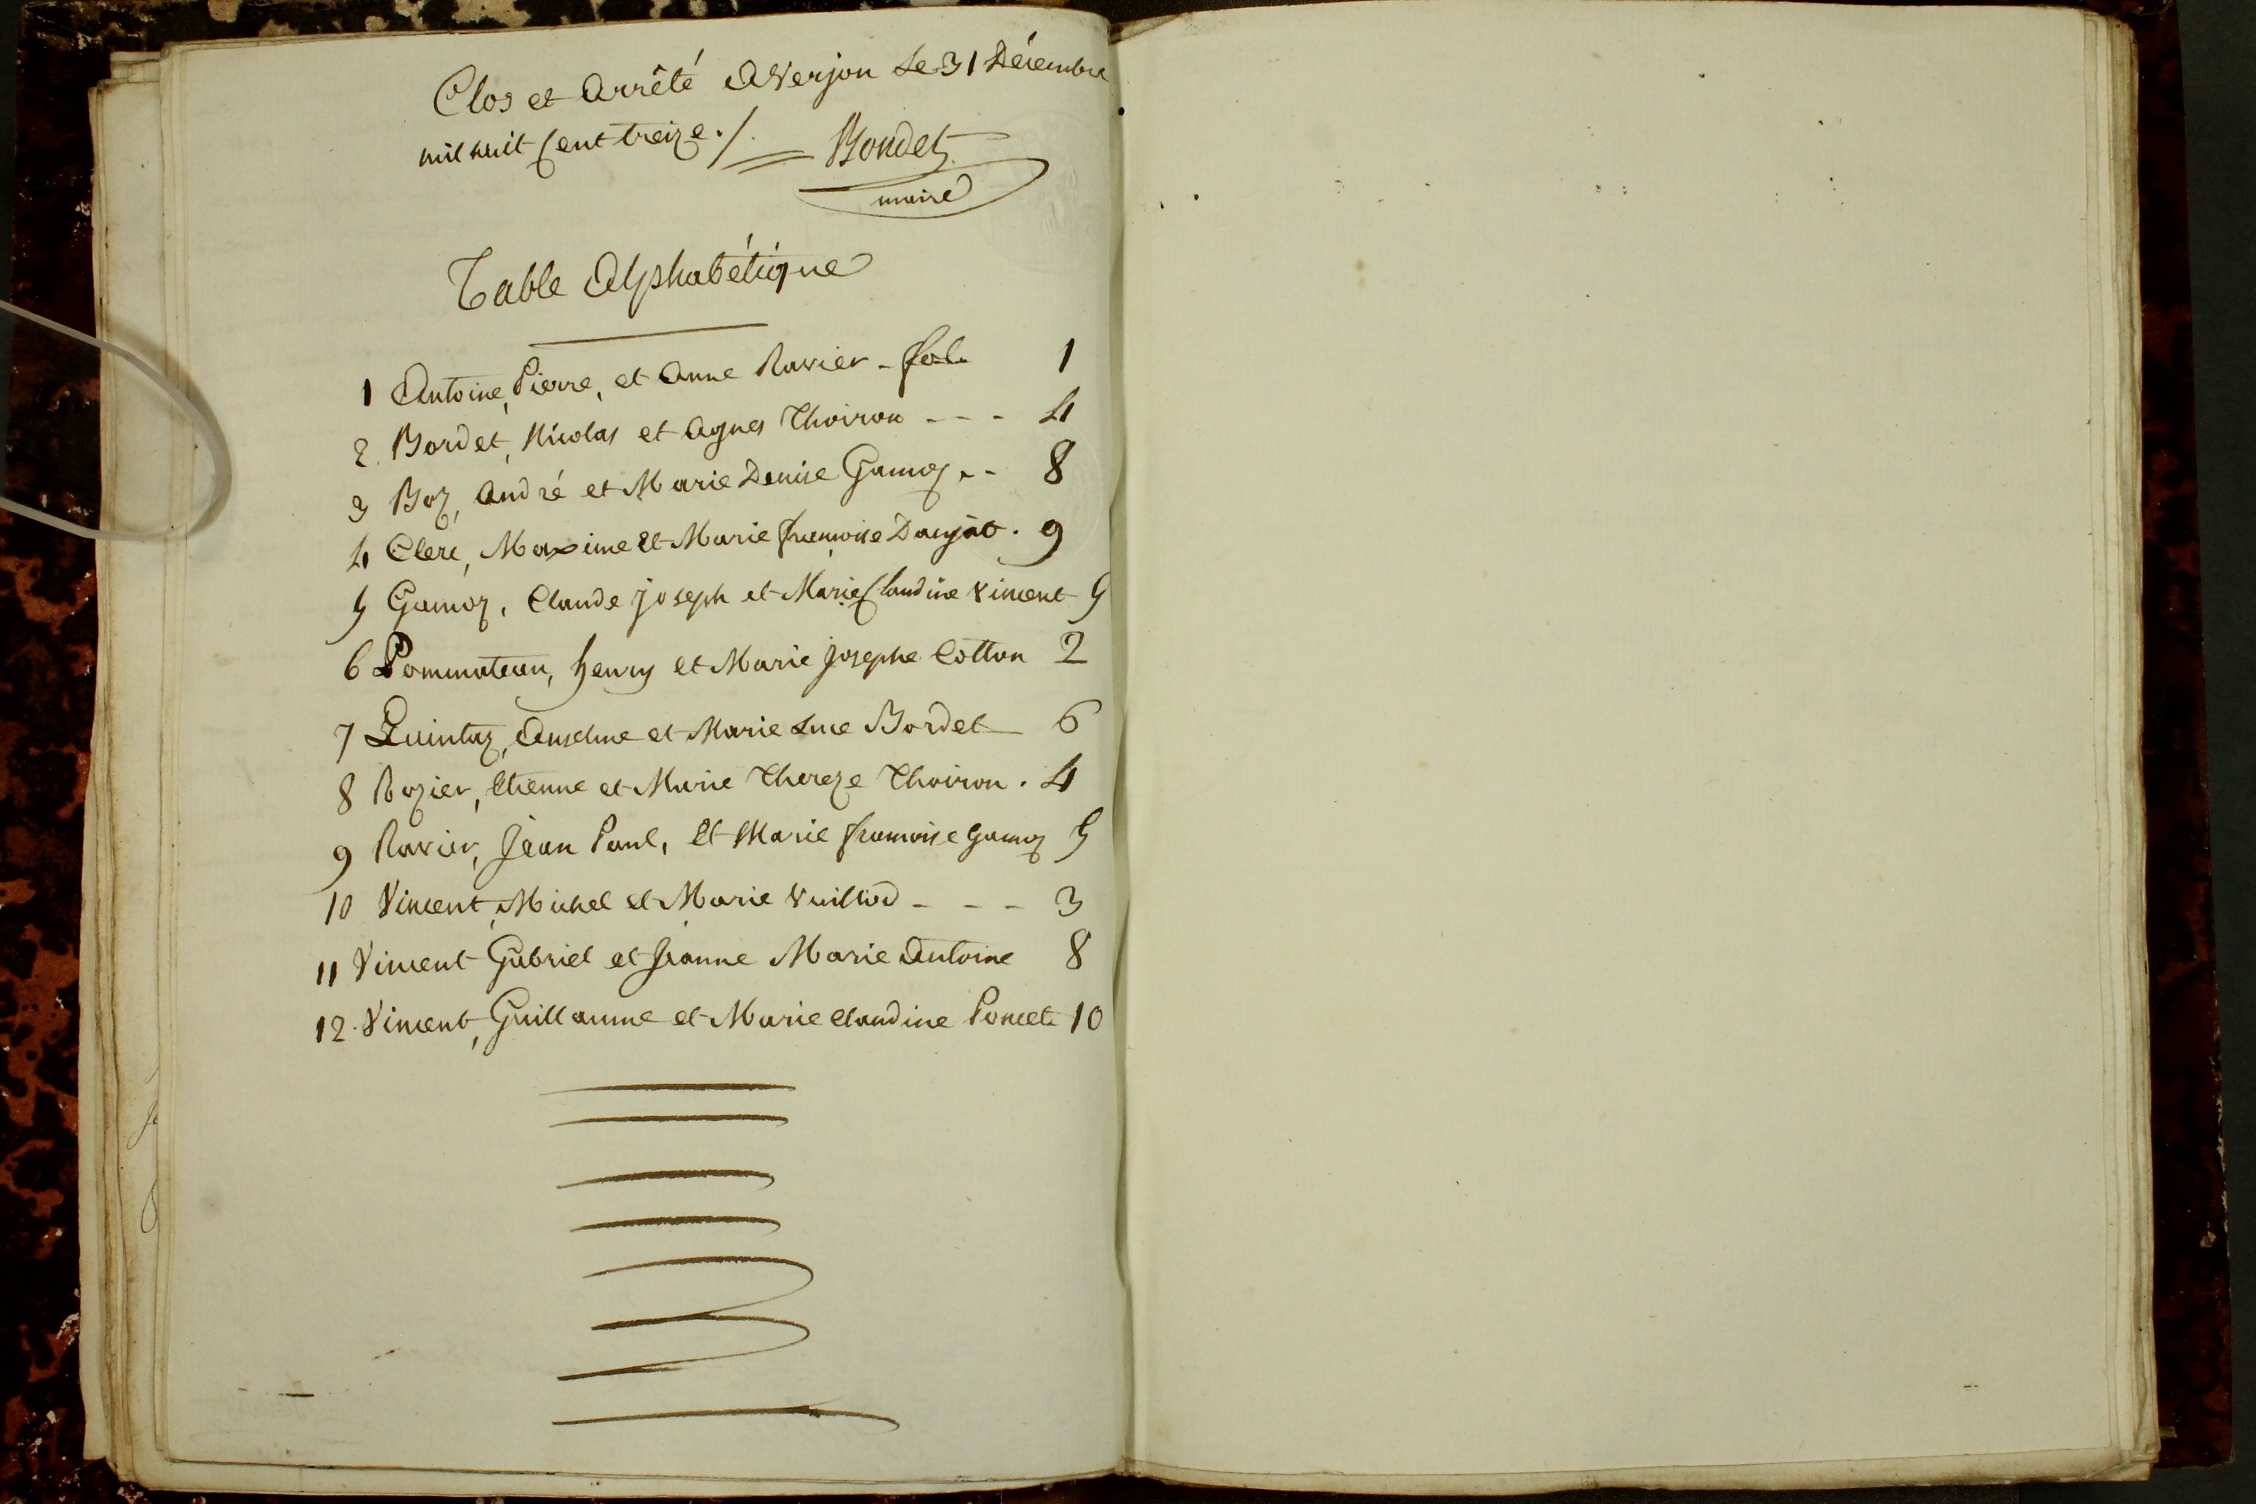 Clos et Arrêté A Verjon Le 31 Décembre
mil huit Cent treize ./.
Bondet
maire
Table Alphabétique
1 Antoine, Pierre, et Anne Ravier - fol. 1
2. Bordet, Nicolas et Agnes Thoiron - - - 4
3 Boz, André et Marie Denise Gamoz - - 8
4 Clerc, Maxime Et Marie françoise . 9
5 Gamoz, Claude Joseph et Marie Claudine Vincent 5
6 Pommateau, henry et Marie Josephe Cotton 2
7 Quintaz, Anselme et Marie Luce Bordet 6
8 Rozier, Etienne et Marie Thereze Thoiron . 4
9 Ravier, Jean Paul, Et Marie francoise Gamoz 5
10 Vincent, Michel et Marie Vuillod - - - 3
11 Vincent Gabriel et Jeanne Marie Antoine 8
12. Vincent, Guillaume et Marie Claudine Poncet 10